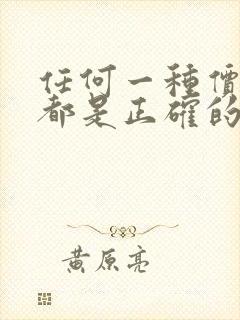 任何一種價
都是正確的
黃原亮